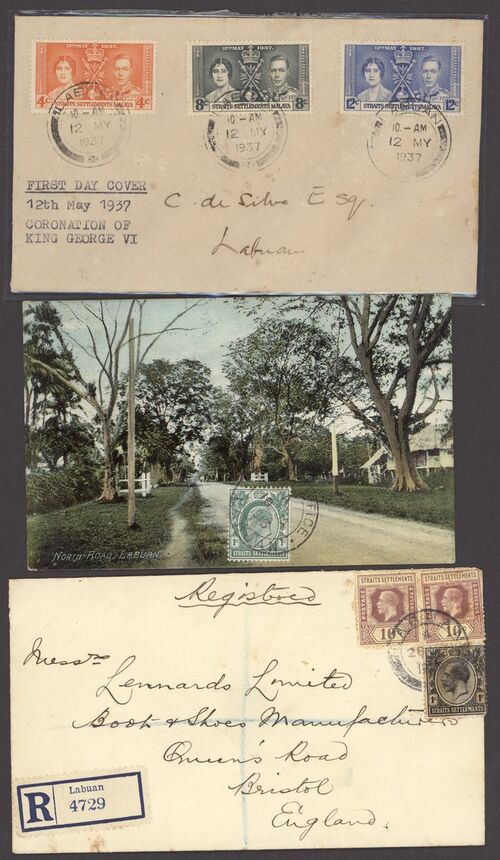 12TH MAY 1937.
4c 4c
STRAITS SETTLEMENTS MALAYA
12TH MAY 1937.
8c 8c
STRAITS SETTLEMENTS MALAYA
12TH MAY 1937.
12c 12c
STRAITS SETTLEMENTS MALAYA
10-AM
12 MY
1937
10-AM
12 MY
1937
10-AM
12 MY
1937
FIRST DAY COVER
12th May 1937
CORONATION OF
KING GEORGE VI
C. de Silva Esq.
Labuan
STRAITS SETTLEMENTS
NORTH ROAD, LABUAN
Registered
STRAITS SETTLEMENTS
10c
STRAITS SETTLEMENTS
10c
STRAITS SETTLEMENTS
Messrs
Lennards Limited
Boot & Shoes Manufacturers
Queen's Road
Bristol
England.
R
Labuan
4729